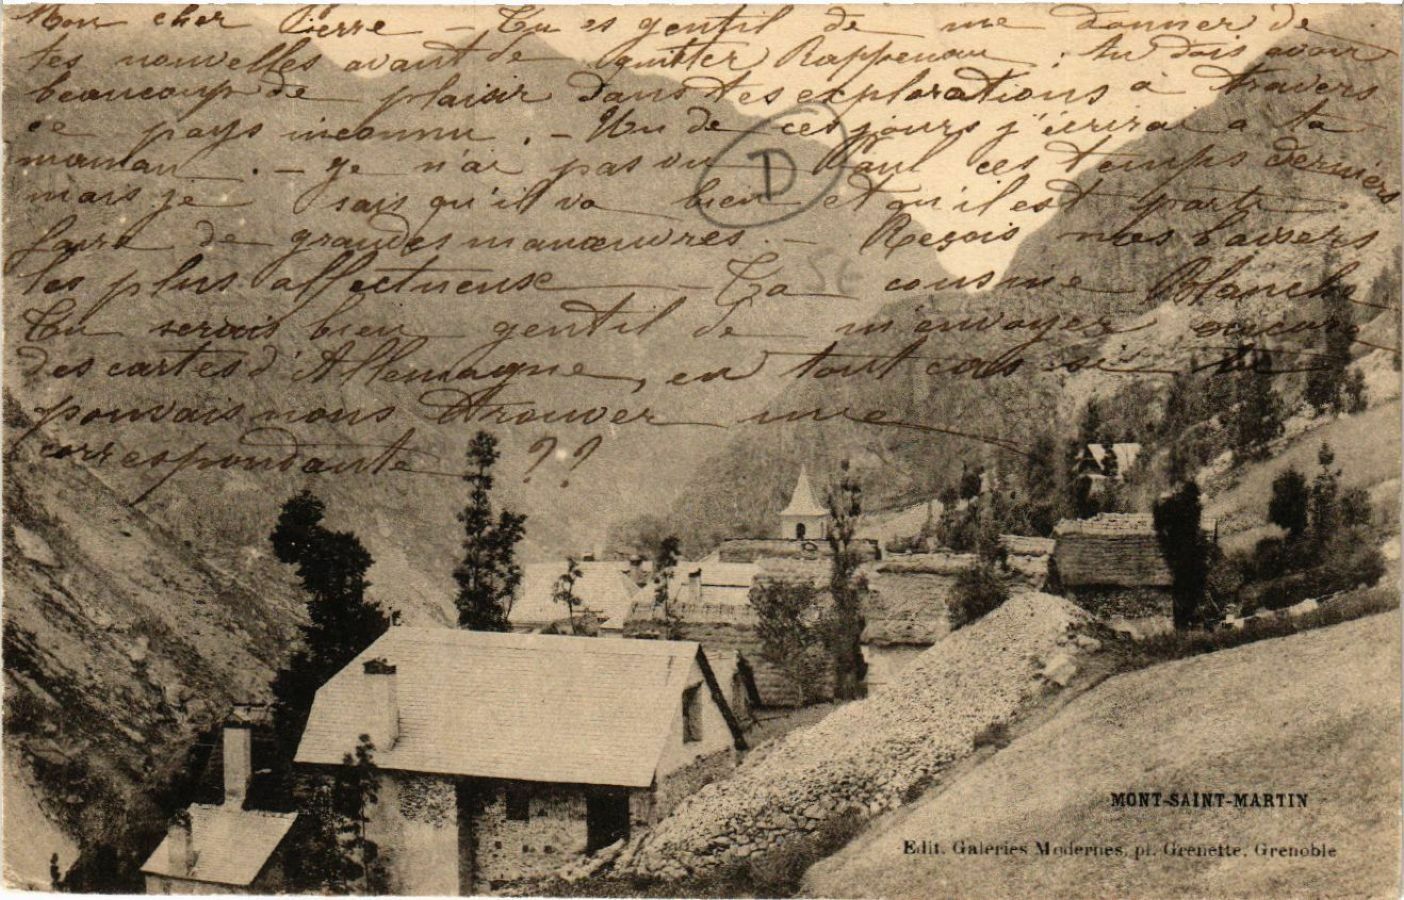 Mon cher Pierre – Tu es gentil de me donner de
tes nouvelles avant de quitter Rappenau ; tu dois avoir
beaucoup de plaisir dans tes explorations à travers
ce pays inconnu. – Un de ces jours j'écrirai à ta
maman. – Je n'ai pas vu Paul ces temps derniers
mais je sais qu'il va bien et qu'il est parti
faire de grandes manœuvres. – Reçois mes baisers
les plus affectueuse – Ta cousine Blanche
Tu serais bien gentil de m'envoyer encore
des cartes d'Allemagne, en tout cas si tu
pouvais nous trouver une
correspondante ??
D
SE
MONT-SAINT-MARTIN
Edit. Galeries Modernes, pl. Grenette, Grenoble